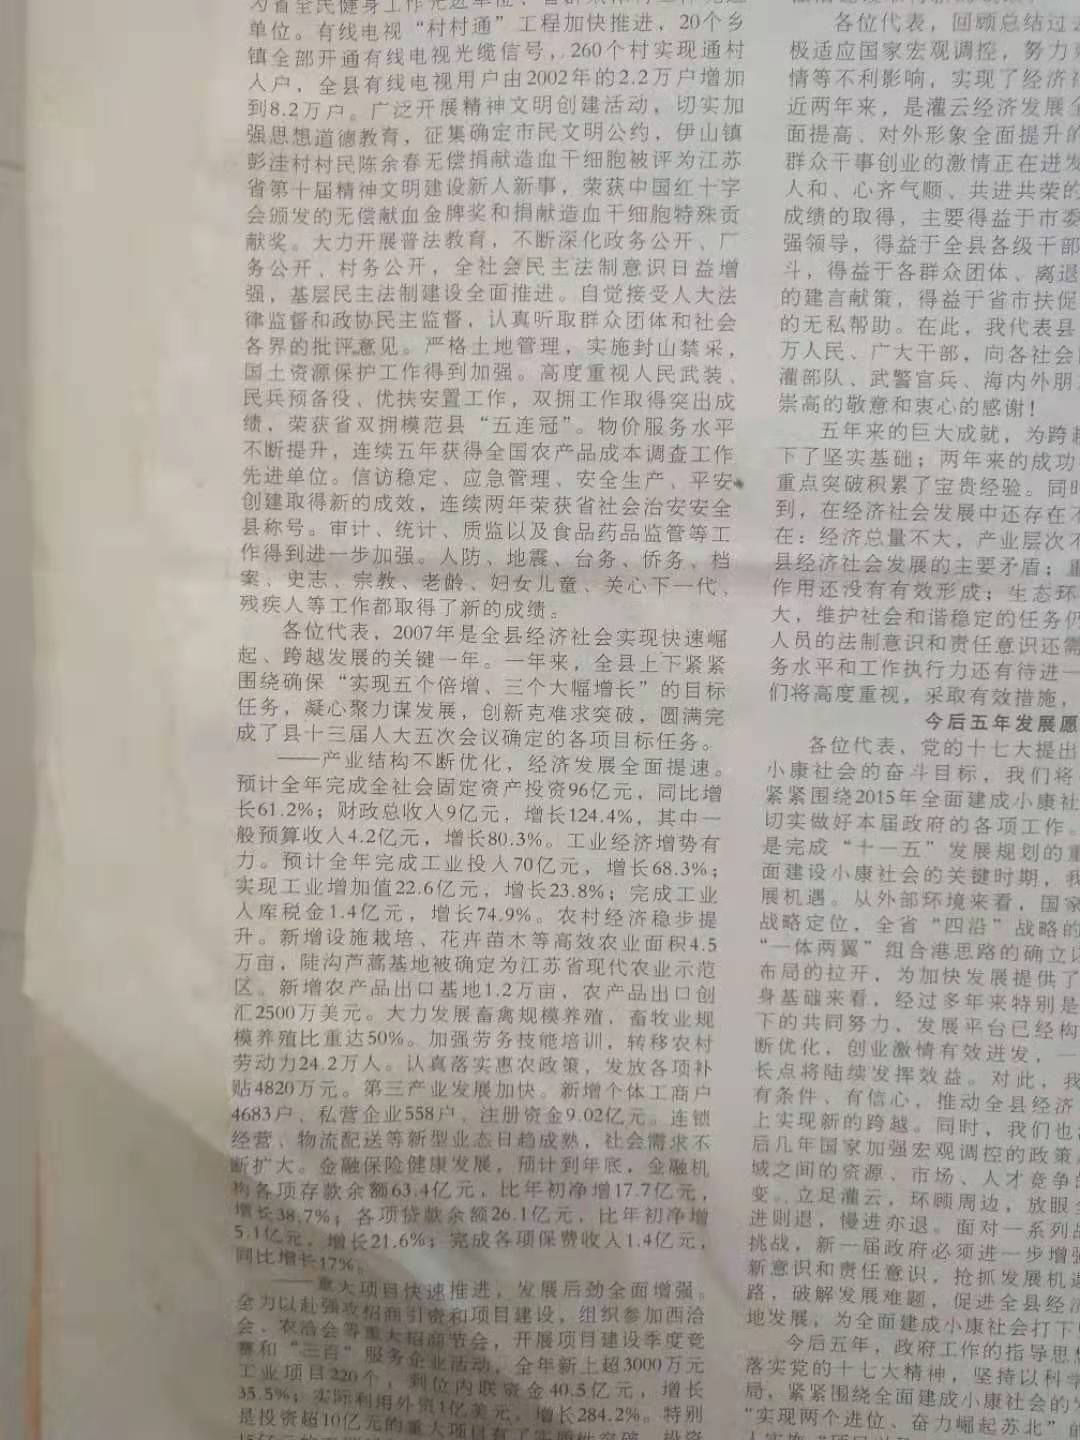 为省全民健身工作先进单位、
单位。有线电视“村村通”工程加快推进，20个乡
镇全部开通有线电视光缆信号，260个村实现通村
入户，全县有线电视用户由2002年的2.2万户增加
到8.2万户。广泛开展精神文明创建活动，切实加
强思想道德教育，征集确定市民文明公约，伊山镇
彭洼村村民陈余春无偿捐献造血干细胞被评为江苏
省第十届精神文明建设新人新事，荣获中国红十字
会颁发的无偿献血金牌奖和捐献造血干细胞特殊贡
献奖。大力开展普法教育，不断深化政务公开、厂
务公开、村务公开，全社会民主法制意识日益增
强，基层民主法制建设全面推进。自觉接受人大法
律监督和政协民主监督，认真听取群众团体和社会
各界的批评意见。严格土地管理，实施封山禁采，
国土资源保护工作得到加强。高度重视人民武装、
民兵预备役、优扶安置工作，双拥工作取得突出成
绩，荣获省双拥模范县“五连冠”。物价服务水平
不断提升，连续五年获得全国农产品成本调查工作
先进单位。信访稳定、应急管理、安全生产、平安
创建取得新的成效，连续两年荣获省社会治安安全
县称号。审计、统计、质监以及食品药品监管等工
作得到进一步加强。人防、地震、台务、侨务、档
案、史志、宗教、老龄、妇女儿童、关心下一代、
残疾人等工作都取得了新的成绩。
各位代表，2007年是全县经济社会实现快速崛
起、跨越发展的关键一年。一年来，全县上下紧紧
围绕确保“实现五个倍增、三个大幅增长”的目标
任务，凝心聚力谋发展，创新克难求突破，圆满完
成了县十三届人大五次会议确定的各项目标任务。
——产业结构不断优化，经济发展全面提速。
预计全年完成全社会固定资产投资96亿元，同比增
长61.2%；财政总收入9亿元，增长124.4%，其中一
般预算收入4.2亿元，增长80.3%。工业经济增势有
力。预计全年完成工业投入70亿元，增长68.3%；
实现工业增加值22.6亿元，增长23.8%；完成工业
入库税金1.4亿元，增长74.9%。农村经济稳步提
升。新增设施栽培、花卉苗木等高效农业面积4.5
万亩，陡沟芦蒿基地被确定为江苏省现代农业示范
区。新增农产品出口基地1.2万亩，农产品出口创
汇2500万美元。大力发展畜禽规模养殖，畜牧业规
模养殖比重达50%。加强劳务技能培训，转移农村
劳动力24.2万人。认真落实惠农政策，发放各项补
贴4820万元。第三产业发展加快。新增个体工商户
4683户、私营企业558户、注册资金9.02亿元。连锁
经营、物流配送等新型业态日趋成熟，社会需求不
断扩大。金融保险健康发展，预计到年底，金融机
构各项存款余额63.4亿元，比年初净增17.7亿元，
增长38.7%；各项贷款余额26.1亿元，比年初净增
5.1亿元，增长21.6%；完成各项保费收入1.4亿元，
同比增长17%。
——重大项目快速推进，发展后劲全面增强。
全力以赴强攻招商引资和项目建设，组织参加西洽
会、农洽会等重大招商节会，开展项目建设季度竞
赛和“三百”服务企业活动，全年新上超3000万元
工业项目220个，到位内联资金40.5亿元，增长
35.5%；实际利用外资1亿美元，增长284.2%。特别
是投资超10亿元的重大项目有了实质性突破，投资
各位代表，回顾总结过去
极适应国家宏观调控，努力
情等不利影响，实现了经济
近两年来，是灌云经济发展
面提高、对外形象全面提升的
群众干事创业的激情正在迸发
人和、心齐气顺、共进共荣的
成绩的取得，主要得益于市委
强领导，得益于全县各级干部
斗，得益于各群众团体、离退
的建言献策，得益于省市扶促
的无私帮助。在此，我代表县
万人民、广大干部，向各社会
灌部队、武警官兵、海内外朋
崇高的敬意和衷心的感谢！
五年来的巨大成就，为跨越
下了坚实基础；两年来的成功
重点突破积累了宝贵经验。同时
到，在经济社会发展中还存在不
在：经济总量不大，产业层次不
县经济社会发展的主要矛盾；重
作用还没有有效形成；生态环
大，维护社会和谐稳定的任务仍
人员的法制意识和责任意识还需
务水平和工作执行力还有待进一
们将高度重视，采取有效措施，
今后五年发展愿
各位代表，党的十七大提出
小康社会的奋斗目标，我们将
紧紧围绕2015年全面建成小康社
切实做好本届政府的各项工作。
是完成“十一五”发展规划的重
面建设小康社会的关键时期，我
展机遇。从外部环境来看，国家
战略定位，全省“四沿”战略的
“一体两翼”组合港思路的确立以
布局的拉开，为加快发展提供了
身基础来看，经过多年来特别是
下的共同努力，发展平台已经构
断优化，创业激情有效迸发，一
长点将陆续发挥效益。对此，我
有条件、有信心，推动全县经济
上实现新的跨越。同时，我们也
后几年国家加强宏观调控的政策
域之间的资源、市场、人才竞争的
变。立足灌云，环顾周边，放眼全
进则退，慢进亦退。面对一系列
挑战，新一届政府必须进一步增强
新意识和责任意识，抢抓发展机遇
路，破解发展难题，促进全县经济
地发展，为全面建成小康社会打下
今后五年，政府工作的指导思想
落实党的十七大精神，坚持以科学
局，紧紧围绕全面建成小康社会的
“实现两个进位、奋力崛起苏北”的